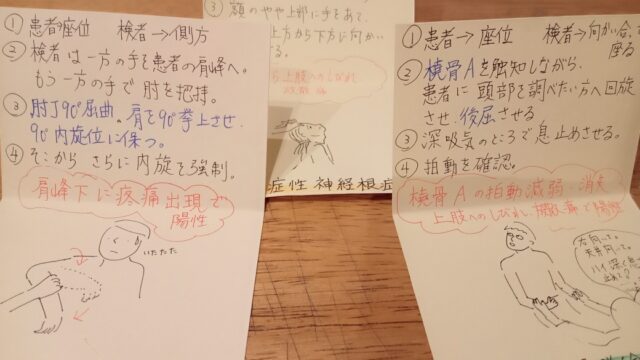 ① 患者→座位　検者→側方
② 検者は一方の手を患者の肩峰へ。
もう一方の手で肘を把持。
③ 肘J90°屈曲。肩を90°挙上させ、
90°内旋位に保つ。
④ そこから さらに内旋を強制。
肩峰下に疼痛出現で
陽性
いたたたた
③ 頭のやや上部に手をあて、
上方から下方に向かい
上肢へのしびれ
放散痛
症性 神経根症
① 患者→座位　検者→向かい合って
座る
② 橈骨Aを触知しながら、
患者に頭部を調べたい方へ回旋
させ、後屈させる
③ 深吸気のところで息止めさせる。
④ 拍動を確認。
橈骨Aの拍動減弱・消失
上肢へのしびれ、で陽性
右向いて。
天井向いて。
ハイ 深く